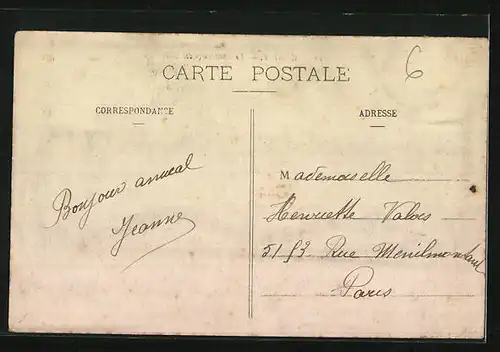 CARTE POSTALE
6
CORRESPONDANCE
ADRESSE
Bonjour amical
Jeanne
Mademoiselle
Henriette Valois
51 53 Rue Ménilmontant
Paris